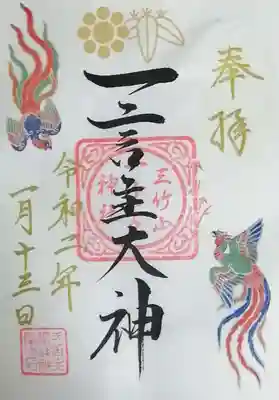 奉拝
一言主大神
三竹山
令和二年
一月十三日